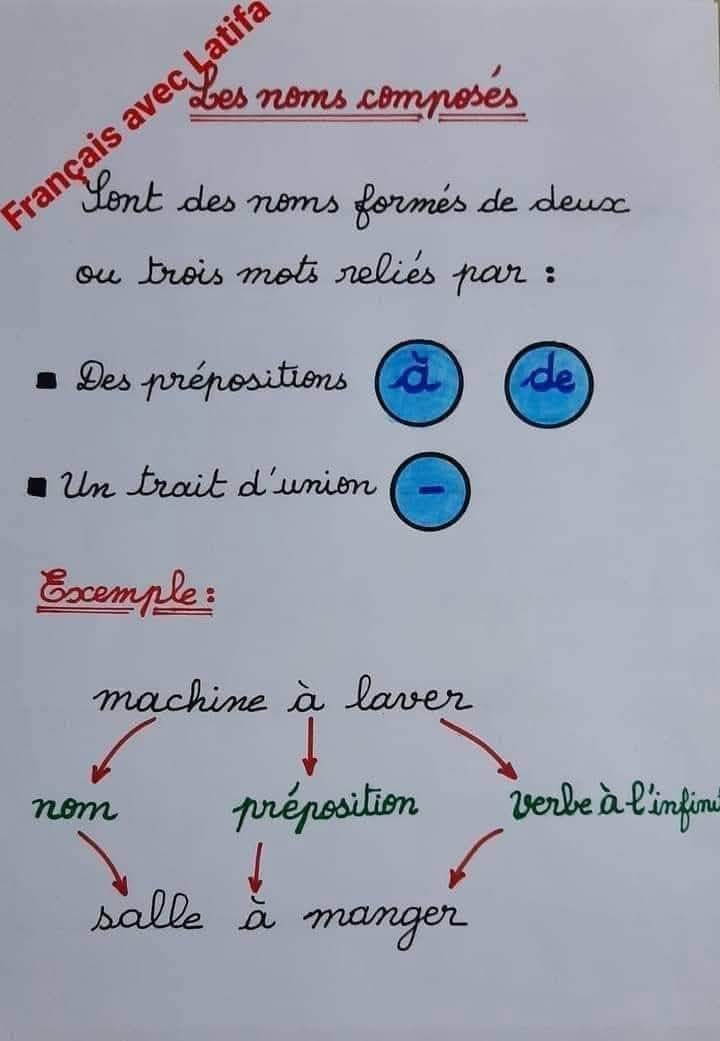 Français avec Latifa
Les noms composés
Sont des noms formés de deux
ou trois mots reliés par :
Des prépositions à de
Un trait d'union -
Exemple :
machine à laver
nom préposition verbe à l'infini
salle à manger